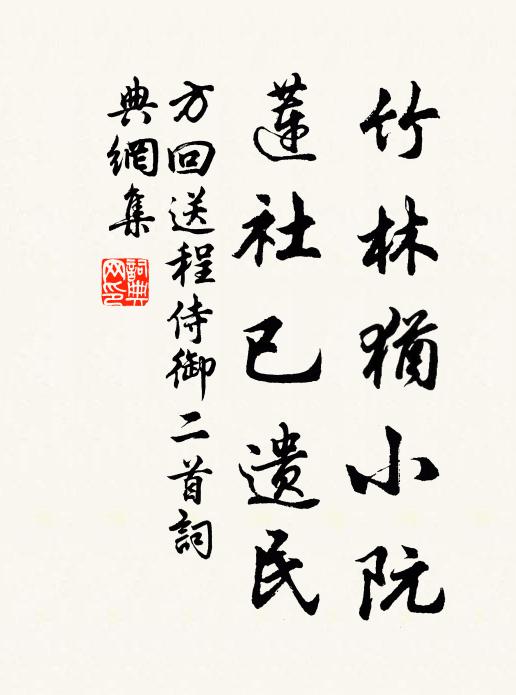 竹林猶小阮
蓮社已遺民
方回送程侍御二首詞
典網集
詞典网印